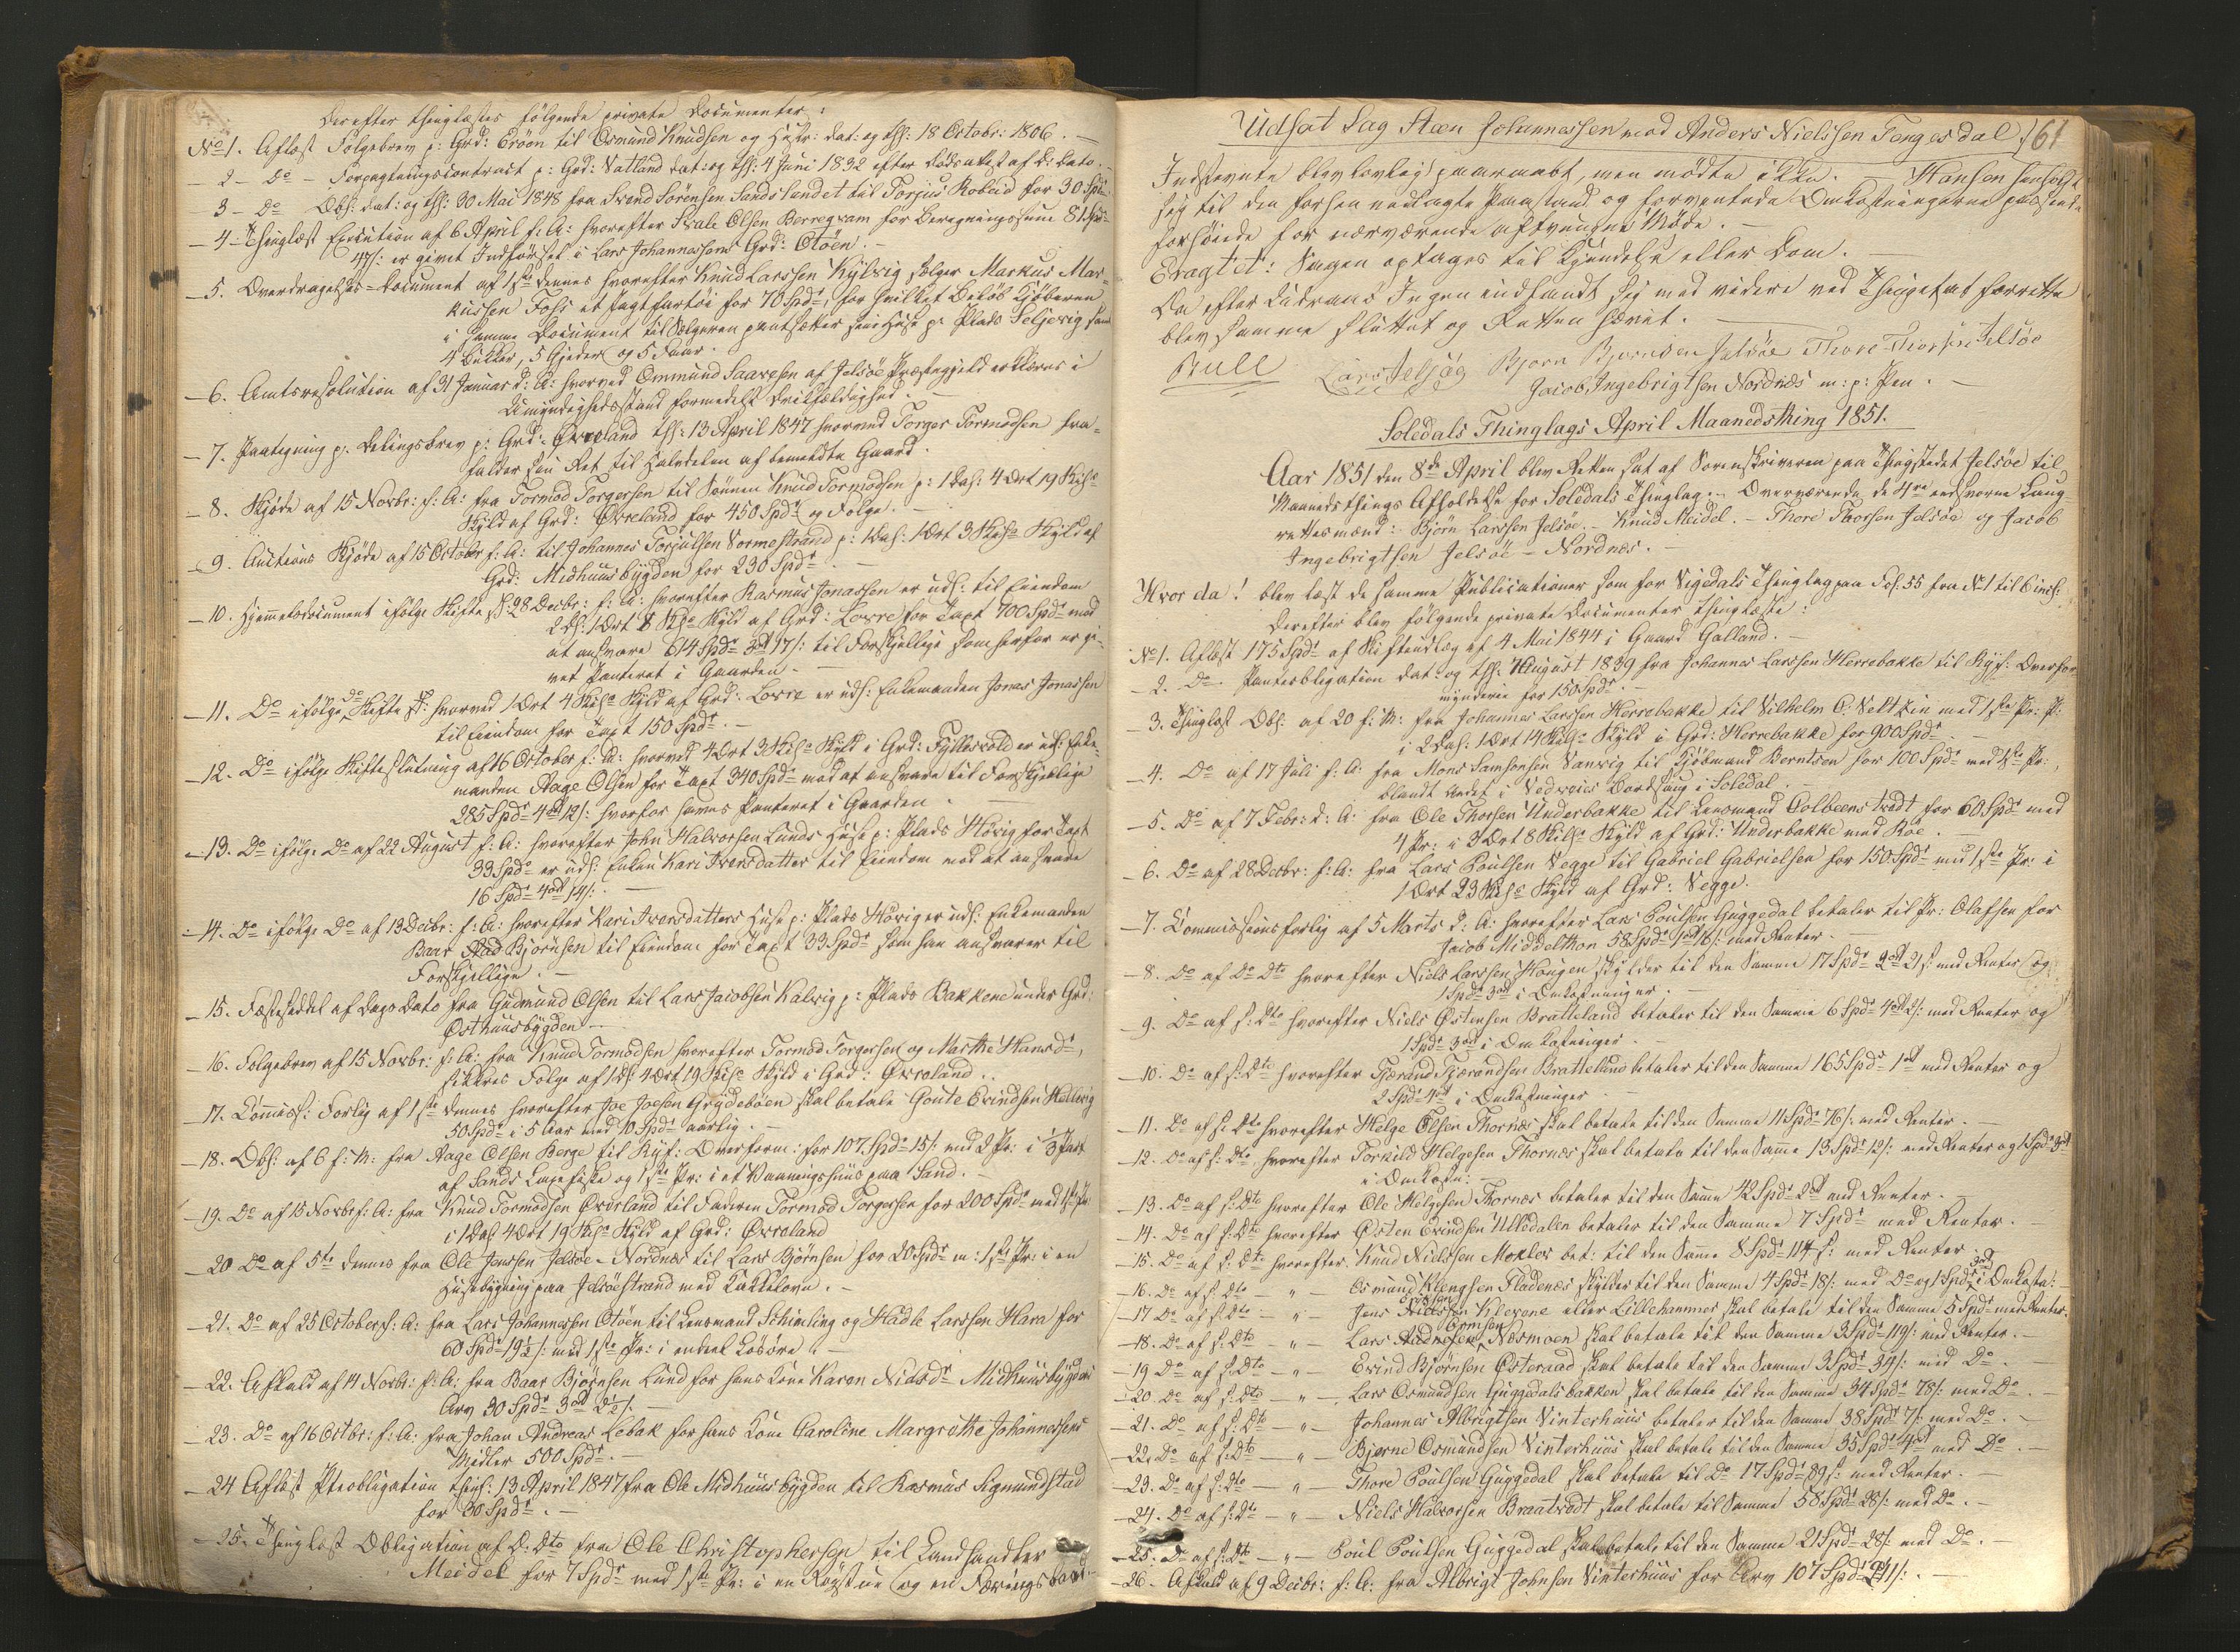 Derefter thinglæstes følgende private Documenter:
No 1. Aflæst Følgebrev p: Grd: Erøen til Osmund Knudsen og Hustr: dat: og thl: 18 Octobr: 1806. —
— 2 – Do – Forpagtningscontract p: Grd: Vatland dat: og thl: 4 Juni 1832 efter Dødsattest af D: Dato. —
3 – Do Obl: dat: og thl: 30 Mai 1848 fra Svend Sörensen Sandslandet til Torjus Roberd for 30 Spd:
— 4 – Thinglæst Execution af 6 April f: A: hvorefter Svale Olsen Berregvam for Beregningssum 81 Spd:
47 s: er givet Indførsel i Lars Johannessens Grd: Otöen. —
— 5. Overdragelses-Document af 1ste dennes hvorefter Knud Larssen Kylvig sælger Markus Mar-
kussen Foss et Jagtfartöi for 70 Spdr, for hvilket Beløb Kjøberen
i samme Document til Sælgeren pantsætter sine Huse p: Plads Seljevig samt
4 Bukker, 5 Gjeder og 5 Faar.
— 6. Amtsresolution af 31 Januar d: A: hvorved Ommund Saavesen af Jelsøe Præstegjeld erklæres i
Umyndighedsstand formedelst Drikfældighed. —
— 7. Paategning p: Delingsbrev p: Grd: Øvreland thl: 13 April 1847 hvorved Torger Tormodsen fra-
falder sin Ret til Halvdelen af bemeldte Gaard.
— 8. Skjøde af 15 Novbr: f: A: fra Tormod Torgersen til Sönnen Knud Tormodsen p: 1 Dal: 4 Ort 19 Skil:
Skyld af Grd: Øvreland for 450 Spdr og Folge. —
— 9. Auctions Skjøde af 15 Octobr f: A: til Johannes Torjulsen Vormestrand p: 1 Dal: 1 Ort 3 Skil: Skyld af
Grd: Midhuusbygden for 230 Spdr. —
— 10. Hjemmelsdocument ifølge Skifte sl: 28 Decbr: f: A: hvorefter Rasmus Jonassen er udl: til Eiendom
2 Dl: 1 Ort 8 Sk: Skyld af Grd: Lovre for Taxt 700 Spdr mod
at ansvare 614 Spdr 3 ort 17 s: til Forskjellige som herfor er gi-
vet Panteret i Gaarden. —
— 11. Do ifølge Do Skifte sl: hvorved 1 Ort 4 Skil: Skyld af Grd: Lovre er udl: Enkemanden Jonas Jonassen
til Eiendom for Taxt 150 Spdr. —
— 12. Do ifølge Skifteslutning af 16 October f: A: hvorved 4 Ort 3 Skil: Skyld i Grd: Fyllesvold er udl: Enke-
manden Aage Olsen for Taxt 340 Spdr mod at ansvare til Forskjellige
285 Spdr 4 ort 12 s: hvorfor haves Panteret i Gaarden. —
— 13. Do ifølge Do af 22 August f: A: hvorefter John Halvorsen Lunds Huse p: Plads Hövig for Taxt
33 Spdr er udl: Enken Kari Iversdatter til Eiendom mod at ansvare
16 Spdr 4 ort 14 s: —
— 14. Do ifølge Do af 13 Decbr: f: A: hvorefter Kari Iversdatters Huse p: Plads Hövig er udl: Enkemanden
Baar Bjørnsen til Eiendom for Taxt 33 Spdr som han ansvarer til
Forskjellige. —
— 15. Fæsteseddel af Dags Dato fra Gudmund Olsen til Lars Jacobsen Kalvig p: Plads Bakkene under Grd:
Østhuusbygden. —
— 16. Folgebrev af 15 Novbr: f: A: fra Knud Tormodsen hvorefter Tormod Torgersen og Marthe Hansdr,
sikkres Folge af 1 Dl: 4 Ort 19 Skil: Skyld i Grd: Øvreland.
— 17. Commiss: Forlig af 1ste dennes hvorefter Joe Joesen Grydeböen skal betale Goute Evindsen Hellevig
50 Spdr i 5 Aar med 10 Spdr aarlig. —
— 18. Obl: af 6 f: M: fra Aage Olsen Berge til Ryf: Overform: for 107 Spdr 15 s: med 2 Pr: i 1/3 Part
af Sands Laxefiske og 1ste Pr: i et Vaaningshuus paa Sand. —
— 19. Do af 15 Novbr f: A: fra Knud Tormodsen Øvreland til Faderen Tormod Torgersen for 200 Spdr med 1ste Pr:
i 1 Dal: 4 Ort 19 Skil: Skyld af Grd: Øvreland
— 20 Do af 5te dennes fra Ole Jonssen Jelsöe-Nordnæs til Lars Bjørnsen for 20 Spdr m: 1ste Pr: i en
Huusbygning paa Jelsöestrand med Kakkelovn. —
— 21. Do af 25 October f: A: fra Lars Johannessen Otöen til Lensmand Schinling og Hadle Larssen Hara for
60 Spdr 19 1/2 s: med 1ste Pr: i endeel Løsöre. —
— 22. Afkald af 14 Novbr: f: A: fra Baar Bjørnsen Lund for hans Kone Karen Nielsdr Midhuusbygdens
Arv 30 Spdr 3 ort 2 1/2 s. —
— 23. Do af 16 Octbr: f: A: fra Johan Andreas Lebak for hans Kone Caroline Margrethe Johannessens
Midler 500 Spdr. —
— 24 Aflæst Pteobligation thinl: 13 April 1847 fra Ole Midhuusbygden til Rasmus Sigmundstad
for 30 Spdr. —
— 25. Thinglæst Obligation af D: Dto fra Ole Christophersen til Landhandler
Meidel for 7 Spdr med 1ste Pr: i en Røgstue og en Færingsbaad. —
Udsat Sag Sten Johannessen mod Anders Nielssen Tengesdal. 61
Indstevnte blev lovlig paaraabt, men mødte ikke. — Hansen henholdt
sig til den forhen nedlagte Paastand og forventede Omkostningerne passende
forhöiede for nærværende aftvungne Møde. —
Eragtet: Sagen optages til Kjendelse eller Dom. —
Da efter Udraab Ingen indfandt sig med videre ved Thinget at forrette
blev samme sluttet og Retten hævet. —
Bull Lars Jelsøe Bjørn Bjørnsen Jelsöe Thore Thorsen Jelsöe
Jacob Ingebrigtsen Nordnæs m: p: Pen. —
Soledals Thinglags April Maanedsthing 1851.
Aar 1851 den 8de April blev Retten sat af Sorenskriveren paa Thingstedet Jelsöe til
Maanedsthings Afholdelse for Soledals Thinglag. — Overværende de 4re eedsvorne Laug-
rettesmænd: Bjørn Larssen Jelsöe. – Knud Meidel. – Thore Thorsen Jelsöe og Jacob
Ingebrigtsen Jelsöe – Nordnæs. —
Hvor da! blev læst de samme Publicationer som for Vigedals Thinglag paa Fol: 55 fra No 1 til 6 incl:
Derefter blev følgende private Documenter thinglæste:
No 1. Aflæst 175 Spdr af Skifteudlæg af 4 Mai 1844 i Gaard Galland. —
— 2. Do Panteobligation dat: og thl: 7 August 1839 fra Johannes Larssen Herrebakke til Ryf: Overfor-
mynderie for 150 Spdr. —
3. Thinglæst Obl: af 20 f: M: fra Johannes Larssen Herrebakke til Vilhelm C. med 1ste Pr: P:
i 2 Dal: 1 Ort 14 Skil: Skyld i Grd: Herrebakke for 900 Spdr. —
— 4. Do af 17 Juli f: A: fra Mons Samsonsen Sanvig til Kjøbmand Berntsen for 100 Spdr med 1ste Pr:,
blandt Andet i Vedveies Bordsaug i Soledal.
— 5. Do af 7 Febr: d: A: fra Ole Thorsen Underbakke til Lensmand Colbeenstvedt for 60 Spdr med
4 Pr: i 3 Ort 8 Skil: Skyld af Grd: Underbakke med Røe. —
— 6. Do af 28 Decbr: f: A: fra Lars Poulsen Vegge til Gabriel Gabrielsen for 150 Spdr med 1ste Pr: i
1 Ort 23 Skil: Skyld af Grd: Vegge.
— 7. Commissionsforlig af 5 Marts d: A: hvorefter Lars Poulsen Guggedal betaler til Pr: Olafsen for
Jacob Middelthon 58 Spdr 1 ort 16 s: med Renter. —
— 8. Do af Do Dto hvorefter Niels Larssen Haugen skylder til den Samme 17 Spdr 2 ort 21 s: med Renter og
1 Spdr 3 ort i Omkostninger. —
— 9. Do af s: Dto hvorefter Niels Østensen Bratteland betaler til den Samme 6 Spdr 4 ort 2 s: med Renter og
1 Spdr 3 ort i Omkostninger. —
— 10. Do af s: Dto hvorefter Tjærand Tjærandsen Bratteland betaler til den Samme 165 Spdr 1 ort med Renter og
2 Spdr 4 ort i Omkostninger. —
— 11. Do af s: Dto hvorefter Helge Olsen Thornæs skal betale til den Samme 11 Spdr 76 s: med Renter. —
— 12. Do af s: Dto hvorefter Torkild Helgesen Thornæs skal betale til den Samme 13 Spdr 12 s: med Renter og 1 Spdr 3 ort
i Omkostn: —
— 13. Do af s: Dto hvorefter Ole Helgesen Thornæs betaler til den Samme 42 Spdr 2 ort med Renter. —
— 14. Do af s: Dto hvorefter Østen Evindsen Ulledalen betaler til den Samme 7 Spdr med Renter. —
— 15. Do af s: Dto hvorefter Knud Nielssen Moklev bet: til den Samme 8 Spdr 114 s: med Renter. —
— 16. Do af s: Dto — „ — Osmund Klengsen Fladenæs skylder til den Samme 4 Spdr 18 s: med Do og 1 Spdr 3 ort i Omkostn: —
— 17 Do af s: Dto — „ — Jens Nielssen Klevene eller Lillehammer skal betale til den Samme 5 Spdr med Renter.
— 18. Do af s: Dto — „ — Lars Aadnesen Ormsen Næsmoen skal betale til den Samme 3 Spdr 119 s: med Renter. —
— 19 Do af s: Dto — „ — Evind Bjørnsen Østeraad skal betale til den Samme 3 Spdr 34 s: med Do. —
— 20. Do af s: Dto — „ — Lars Osmundsen Guggedalsbakken skal betale til den Samme 34 Spdr 78 s: med Do. —
— 21. Do af s: Dto — „ — Johannes Albrigtsen Vinterhuus betaler til den Samme 38 Spdr 7 s: med Do. —
— 22. Do af s: Dto — „ — Bjerne Osmundsen Vinterhuus skal betale til den Samme 35 Spdr 4 ort med Do. —
— 23. Do af s: Dto — „ — Thore Poulsen Guggedal skal betale til Do 17 Spdr 89 s: med Renter. —
— 24. Do af s: Dto — „ — Niels Halvorsen Braatvedt skal betale til Samme 58 Spdr 28 s: med Do. —
— 25. Do af s: Dto — „ — Poul Poulsen Guggedal skal betale til den Samme 21 Spdr 28 s: med Do. —
— 26. Afkald af 9 Decbr: f: A: fra Albrigt Johnsen Vinterhuus for Arv 107 Spdr 2 ort 11 s: —